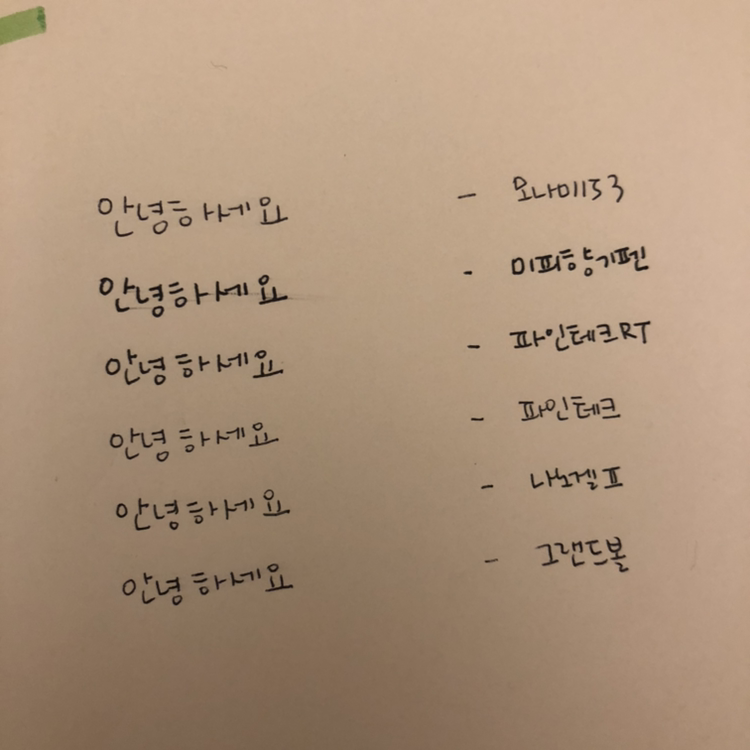 안녕하세요 - 모나미153
안녕하세요 - 미피향기펜
안녕하세요 - 파인테크RT
안녕하세요 - 파인테크
안녕하세요 - 나노겔프
안녕하세요 - 그랜드볼